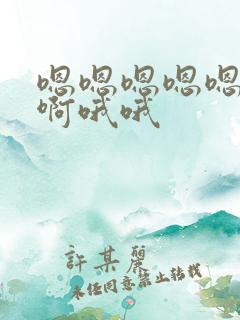 嗯嗯嗯嗯嗯
啊哦哦
許某麗
未经同意禁止转载